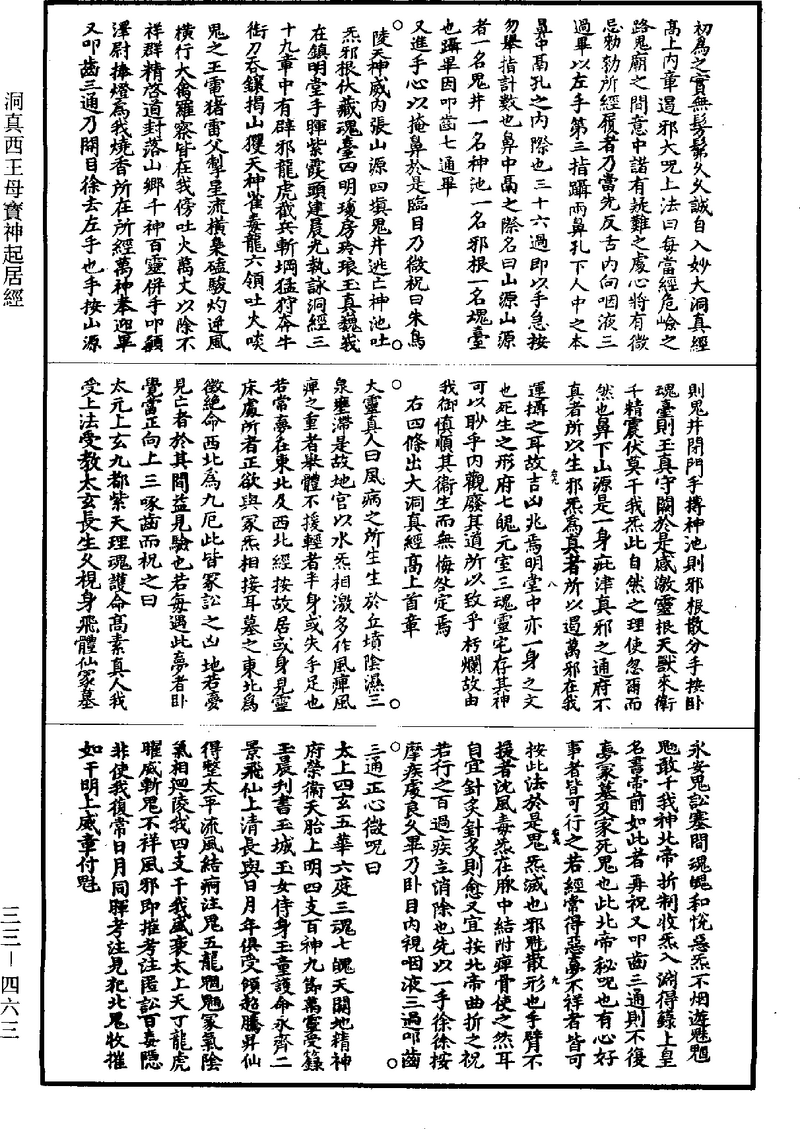 洞真西王母寳神起居經
初爲之實無髣髴久久誠自入妙大洞真經
髙上内章遏邪大呪上法曰每當經危嶮之
路鬼廟之間意中諸有疑難之處心將有微
忌勑勑所經履者乃當先反舌内向咽液三
過畢以左手第三指躡兩鼻孔下人中之本
鼻中鬲孔之内際也三十六過即以手急按
勿舉指計數也鼻中鬲之際名曰山源山源
者一名鬼井一名神池一名邪根一名魂臺
也躡畢因叩齒七通畢
又進手心以掩鼻於是臨目乃微祝曰朱鳥
陵天神威内張山源四塡鬼井逃亡神池吐
炁邪根伏藏魂臺四明瓊房玲琅玉真巍峩
在鎮明堂手暉紫霞頭建晨光執詠洞經三
十九章中有辟邪龍虎截兵斬堈猛狩奔牛
銜刀吞鑲揭山玃天神雀毒龍六領吐火啖
鬼之王雷猪雷父掣星流橫梟磕駮灼逆風
橫行天禽羅察皆在我傍吐火萬丈以除不
祥群精啓道封落山鄉千神百靈併手叩顙
澤尉捧燈爲我燒香所在所經萬神奉迎畢
又叩齒三通乃開目徐去左手也手按山源
則鬼井閉門手摶神池則邪根散分手按卧
魂臺則玉真守關於是感激靈根天獸來衛
千精震伏莫干我炁此自然之理使忽爾而
然也鼻下山源是一身疵津真邪之通府不
真者所以生邪炁爲真者所以遏萬邪在我
運攝之耳故吉凶兆焉明堂中亦一身之文
也死生之形府七魄元室三魂靈宅存其神
可以眇乎内觀廢其道所以致乎朽爛故由
我御慎順其衞生而無悔咎定焉
右四條出大洞真經髙上首章
大靈真人曰風病之所生生於丘墳陰濕三
泉壅滯是故地官以水炁相激多作風痺風
痺之重者舉體不援輕者半身或失手足也
若常夢在東北及西北經按故居或身見靈
床處所者正欲與冢炁相接耳墓之東北爲
徵絶命西北爲九厄此皆冢訟之凶地若憂
見亡者於其間益見驗也若每遇此夢者卧
覺當正向上三啄齒而祝之曰
太元上玄九都紫天理魂護命髙素真人我
受上法受教太玄長生久視身飛體仙冢墓
永安鬼訟塞間魂魄和悅惡炁不烟遊魅魍
魎敢干我神北帝折制收炁入淵得籙上皇
名書帝前如此者再祝又叩齒三通則不復
夢冢墓及家死鬼也此北帝秘呪也有心好
事者皆可行之若經常得惡夢不祥者皆可
按此法於是鬼炁滅也邪魅散形也手臂不
援者沈風毒炁在脉中結附痺骨使之然耳
自宜針灸針灸則愈又宜按北帝曲折之祝
若行之百過疾立消除也先以一手徐徐按
摩疾處良久畢乃卧目内視咽液三過叩齒
三通正心微呪曰
太上四玄五華六庭三魂七魄天關地精神
府榮衞天胎上明四支百神九節萬靈受籙
玉晨刋書玉城玉女侍身玉童護命永齊二
景飛仙上清長與日月年俱受傾超騰昇仙
得整太平流風結痾注鬼五龍魍魎冢氣陰
氣相迴陵我四支干我盛衰太上天丁龍虎
曜威斬鬼不祥風邪即摧考注匿訟百毒隱
非使我復常日月同暉考注見犯北鬼收摧
如干明上威章付魁
三三－四六三